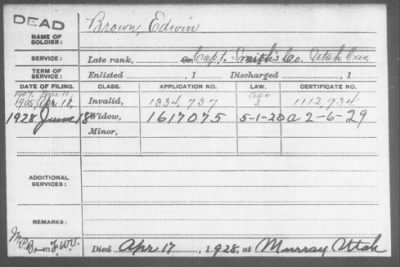 DEAD
NAME OF SOLDIER: Brown, Edwin
SERVICE: Late rank, Capt. Smith's Co. Utah Cav.
TERM OF SERVICE: Enlisted , 1 Discharged , 1
DATE OF FILING. CLASS. APPLICATION NO. LAW. CERTIFICATE NO.
1905, Apr. 18, Invalid, 1334,737 1112,734
1928 June 18 Widow, 1617075 5-1-20 a 2-6-29
Minor,
ADDITIONAL SERVICES:
REMARKS:
Died Apr. 17, 1928, at Murray Utah